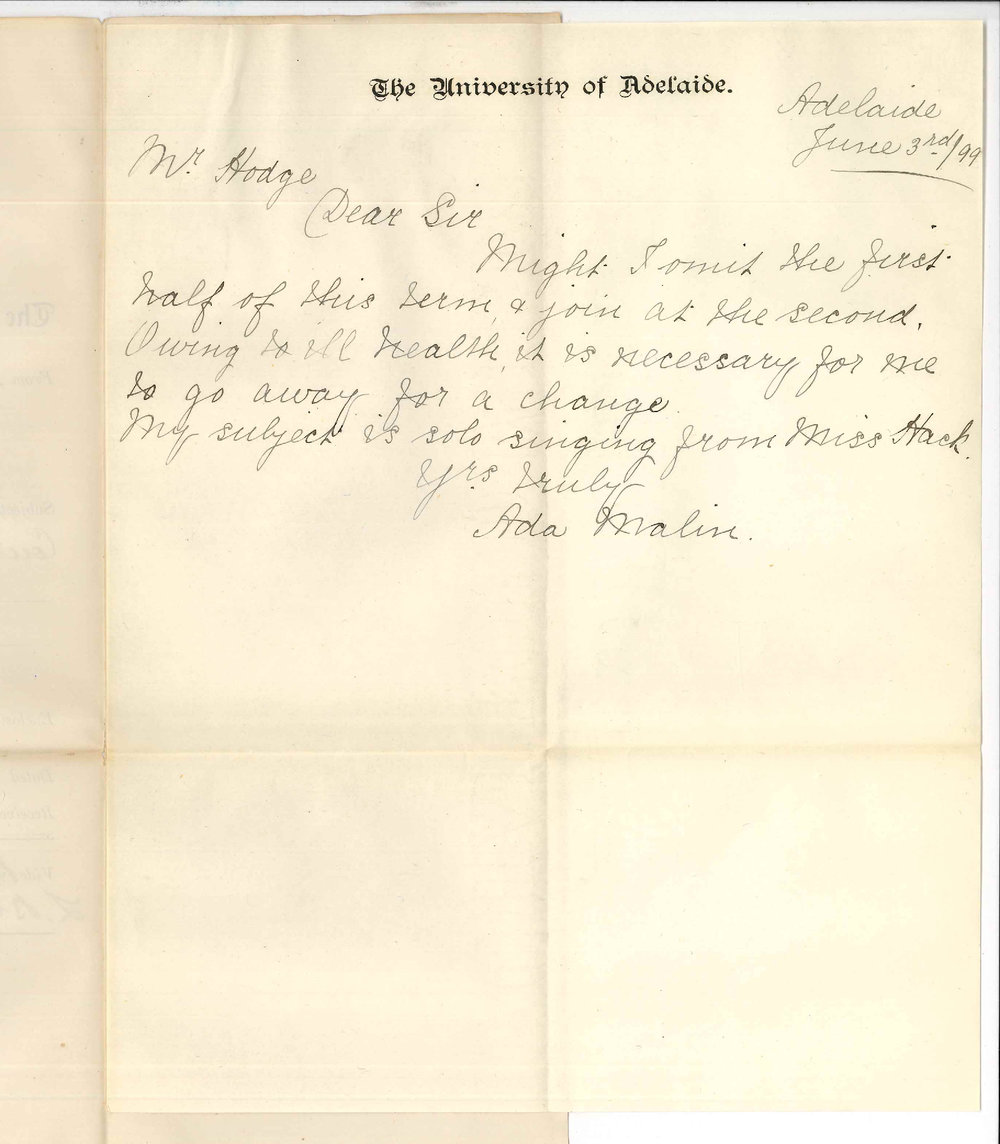 The University of Adelaide.
Adelaide
June 3rd/99
Mr. Hodge
Dear Sir
Might I omit the first
half of this term, & join at the second.
Owing to ill health, it is necessary for me
to go away for a change.
My subject is solo singing from Miss Hack.
Yrs truly
Ada Malin.